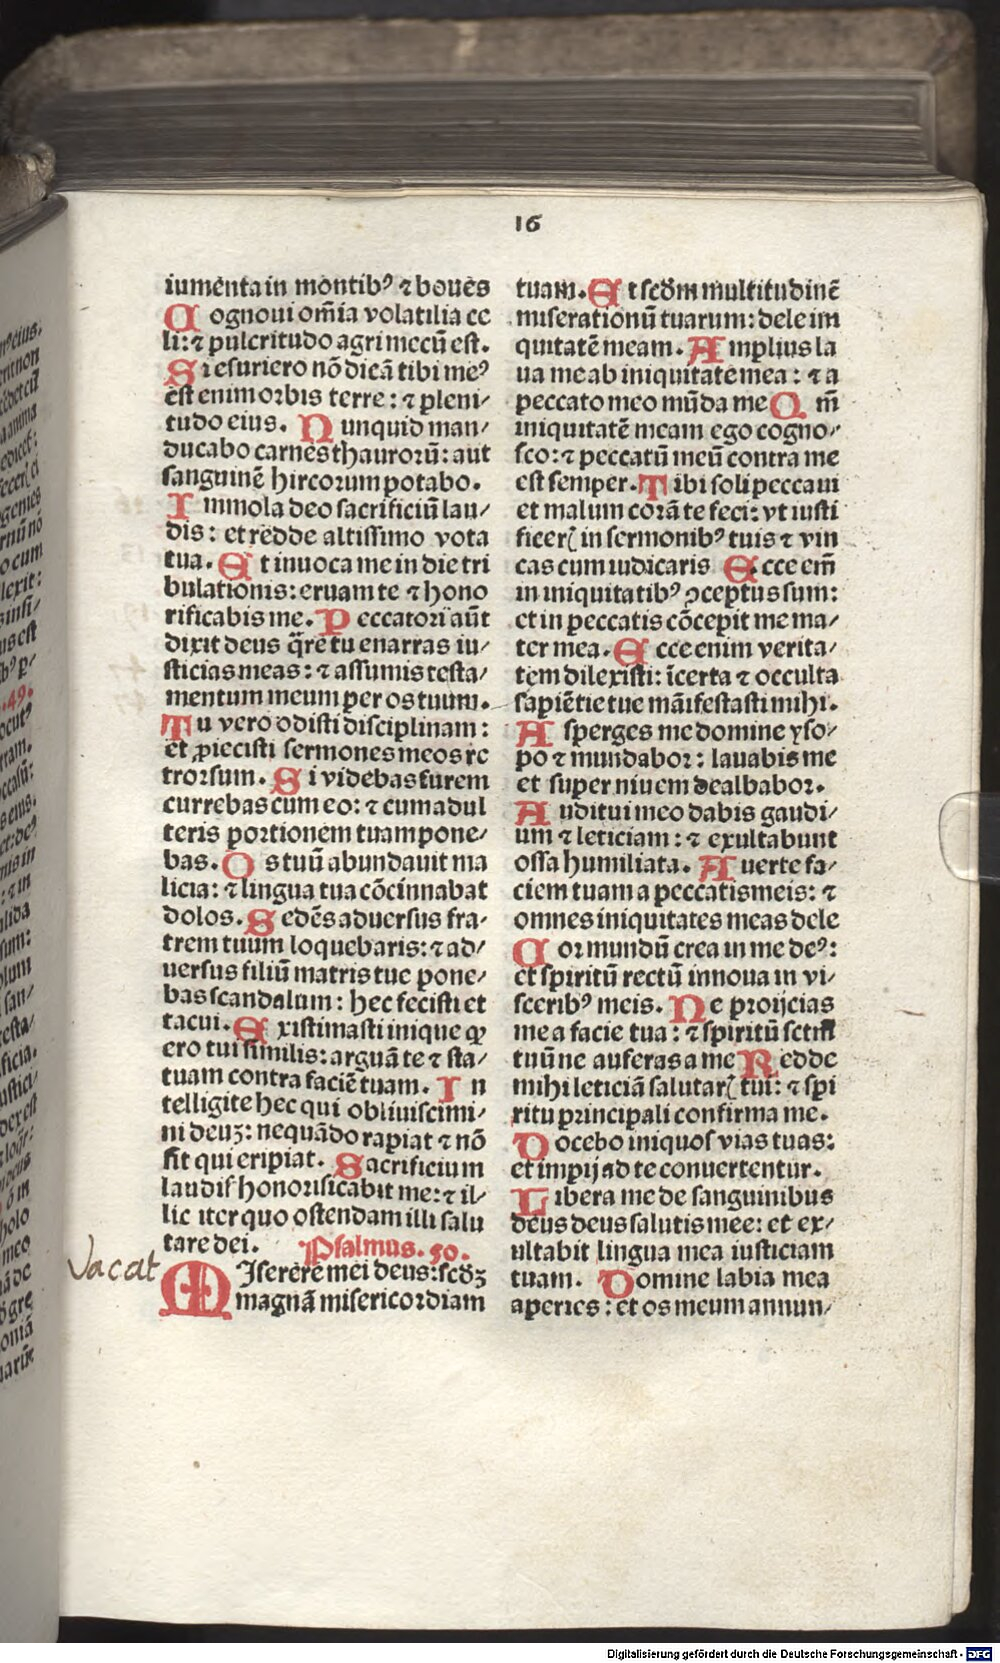 16
iumēta in montibꝰ ⁊ boues
Cognoui om̄ia volatilia ce
li: ⁊ pulcritudo agri mecū est.
Si esuriero nō dicā tibi meꝰ
est enim orbis terre: ⁊ pleni/
tudo eius. Nunquid man/
ducabo carnes thaurorū: aut
sanguinē hircorum potabo.
Immola deo sacrificiū lau/
dis: et redde altissimo vota
tua. Et inuoca me in die tri
bulationis: eruam te ⁊ hono
rificabis me. Peccatori aūt
dixit deus q̄re tu enarras iu/
sticias meas: ⁊ assumis testa/
mentum meum per os tuum.
Tu vero odisti disciplinam:
et ꝓiecisti sermones meos re
trorsum. Si videbas furem
currebas cum eo: ⁊ cum adul
teris portionem tuam pone/
bas. Os tuū abundauit ma
licia: ⁊ lingua tua cōcinnabat
dolos. Sedēs aduersus fra/
trem tuum loquebaris: ⁊ ad/
uersus filiū matris tue pone/
bas scandalum: hec fecisti et
tacui. Existimasti inique ꝙ
ero tui similis: arguā te ⁊ sta/
tuam contra faciē tuam. In
telligite hec qui obliuiscimi/
ni deuꝫ: nequādo rapiat ⁊ nō
sit qui eripiat. Sacrificium
laudis honorificabit me: ⁊ il/
lic iter quo ostendam illi salu
tare dei. Psalmus. 50.
Vacat
MIserere mei deus: scd̄ꝫ
magnā misericordiam
tuam. Et scd̄m multitudinē
miserationū tuarum: dele im
quitatē meam. Amplius la
ua me ab iniquitate mea: ⁊ a
peccato meo mūda me Qm̄
iniquitatē meam ego cogno/
sco: ⁊ peccatū meū contra me
est semper. Tibi soli peccaui
et malum corā te feci: vt iusti
ficerꝭ in sermonibꝰ tuis ⁊ vin
cas cum iudicaris Ecce em̄
in iniquitatibꝰ ꝯceptus sum:
et in peccatis cōcepit me ma/
ter mea. Ecce enim verita/
tem dilexisti: īcerta ⁊ occulta
sapiētie tue māifestasti mihi.
Asperges me domine yso/
po ⁊ mundabor: lauabis me
et super niuem dealbabor.
Auditui meo dabis gaudi/
um ⁊ leticiam: ⁊ exultabunt
ossa humiliata. Auerte fa/
ciem tuam a peccatis meis: ⁊
omnes iniquitates meas dele
Cor mundū crea in me deꝰ:
et spiritū rectū innoua in vi/
sceribꝰ meis. Ne proijcias
me a facie tua: ⁊ spiritū sctm̄
tuū ne auferas a me Redde
mihi leticiā salutarꝭ tui: ⁊ spi
ritu principali confirma me.
Docebo iniquos vias tuas:
et impij ad te conuertentur.
Libera me de sanguinibus
deus deus salutis mee: et ex/
ultabit lingua mea iusticiam
tuam. Domine labia mea
aperies: et os meum annun/
Digitalisierung gefördert durch die Deutsche Forschungsgemeinschaft - DFG